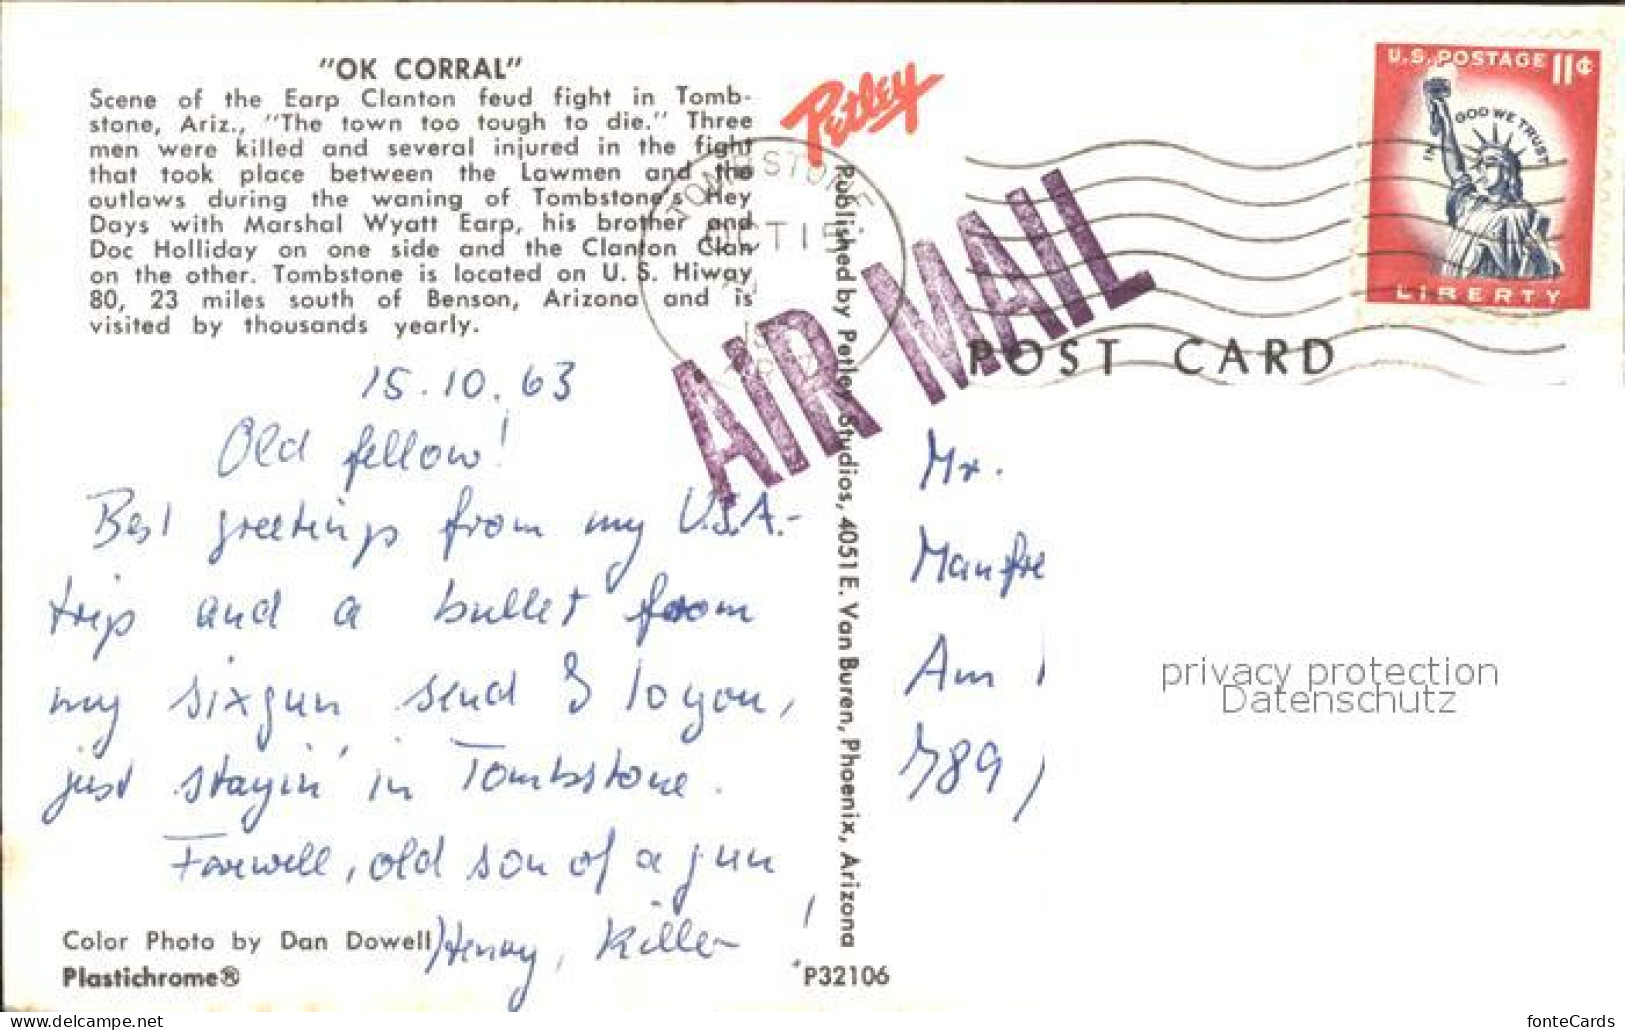 "OK CORRAL"
Scene of the Earp Clanton feud fight in Tomb-
stone, Ariz., "The town too tough to die." Three
men were killed and several injured in the fight
that took place between the Lawmen and the
outlaws during the waning of Tombstone's Hey
Days with Marshal Wyatt Earp, his brother and
Doc Holliday on one side and the Clanton Clan
on the other. Tombstone is located on U. S. Hiway
80, 23 miles south of Benson, Arizona and is
visited by thousands yearly.
15.10.63
Old fellow!
Best greetings from my U.S.A.-
trip and a bullet from
my sixgun send I to you,
just stayin' in Tombstone.
Farwell, old son of a gun!
Henry, Killer
Color Photo by Dan Dowell
Plastichrome®
Petley
Published by Petley Studios, 4051 E. Van Buren, Phoenix, Arizona
P32106
TOMBSTONE
AIR MAIL
U.S. POSTAGE 11¢
IN GOD WE TRUST
LIBERTY
POST CARD
Mr.
Manfre
Am
789
privacy protection
Datenschutz
https://www.delcampe.net/en_US/store/fonte
fonteCards